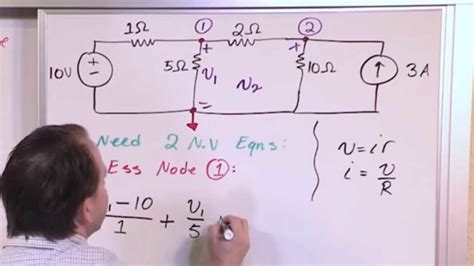 1Ω ① 2Ω ②
10V + − 5Ω + v₁ − v₂ + 10Ω 3A
Need 2 N.V Eqns:
Ess Node ①:
v = ir
i = v/R
-10/1 + v₁/5